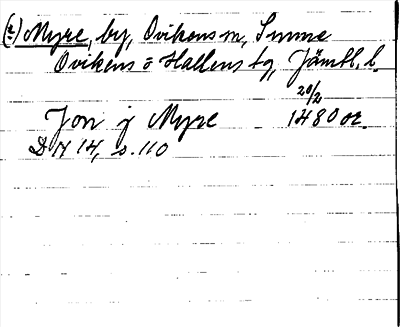 (?) Myre, by, Ovikens sn, Sunne
Ovikens o Hallens tg, Jämtl. l.
20/2
Jon j Myre 1480 or.
DN 14, s. 110